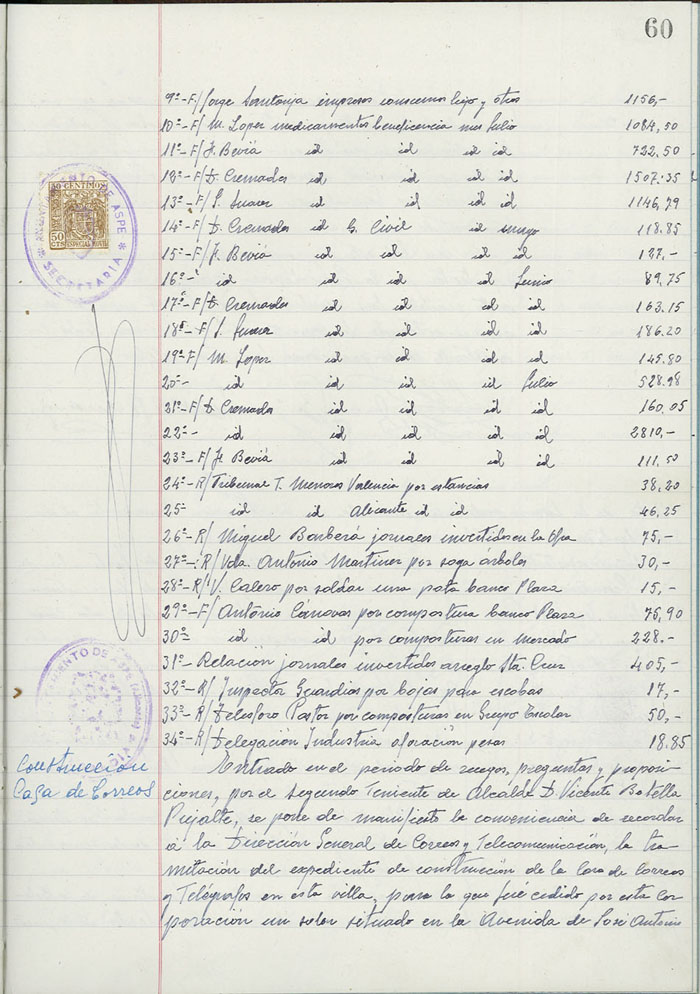 60
9º-F/ Jorge Santonja impresos conscernos hijo y otros 1156,-
10º-F/ M. Lopez medicamentos beneficencia mes Julio 1084,50
11º-F/ J. Beviá id id id id 722,50
12º-F/ D. Cremades id id id id 1507:35
13º-F/ S. Suarez id id id id 1146,79
14º-F/ D. Cremades id G. Civil id mayo 118.85
15º-F/ J. Beviá id id id id 127,-
16º-' id id id id Junio 89,75
17º-F/ D. Cremades id id id id 163.15
18º-F/ S. Suarez id id id id 186.20
19º-F/ M. Lopez id id id id 145.80
20- id id id id Julio 528.98
21º-F/ D. Cremades id id id id 160,05
22º- id id id id id 2810,-
23º-F/ J. Beviá id id id id 111.50
24º-R/ Tribunal T. Menores Valencia por estancias 38,20
25º id id Alicante id id 46,25
26º-R/ Miguel Bonberá jornales invertidos en la 75,-
27º-R/ Vda. Antonio Martinez por soga árboles 30,-
28º-R/ V. Calero por soldar una pata banco Plaza 15,-
29º-F/ Antonio Cánovas por compostura banco Plaza 75,90
30º= id id por composturas en mercado 228.-
31º- Relación jornales invertidos arreglo Sta. Cruz 405,-
32º-R/ Inspector Guardias por bojas para escobas 17,-
33º-R/ Telesforo Pastor por composturas en Grupo Escolar 50,-
34º-R/ Delegación Industria aforación pesas 18.85
Construcción
Casa de Correos
Entrado en el periodo de ruegos, preguntas y proposi-
ciones, por el segundo Teniente de Alcalde D. Vicente Botella
Pujalte, se pone de manifiesto la conveniencia de recordar
á la Dirección General de Correos y Telecomunicación, la tra-
mitación del expediente de construcción de la Casa de Correos
y Telégrafos en esta villa, para la que fué cedido por esta Cor-
poración un solar situado en la Avenida de José Antonio
AYUNTAMIENTO DE ASPE
SECRETARIA
50 CENTIMOS
50 CTS
ESPECIAL MOVIL
AYUNTAMIENTO DE ASPE (Alicante)